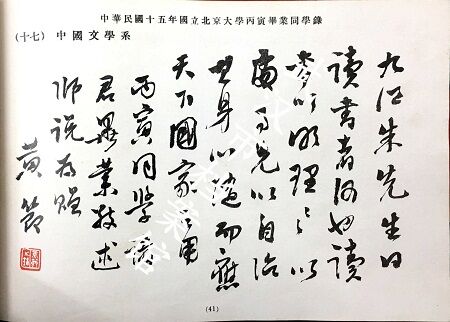 中華民國十五年國立北京大學丙寅畢業同學錄
(十七) 中國文學系
九江朱先生曰
讀書者何也讀
書以明理〻以
處事先以自治
其身心隨而應
天下國家之用
丙寅同學諸
君畢業敬述
師說為贈
黃節
(41)